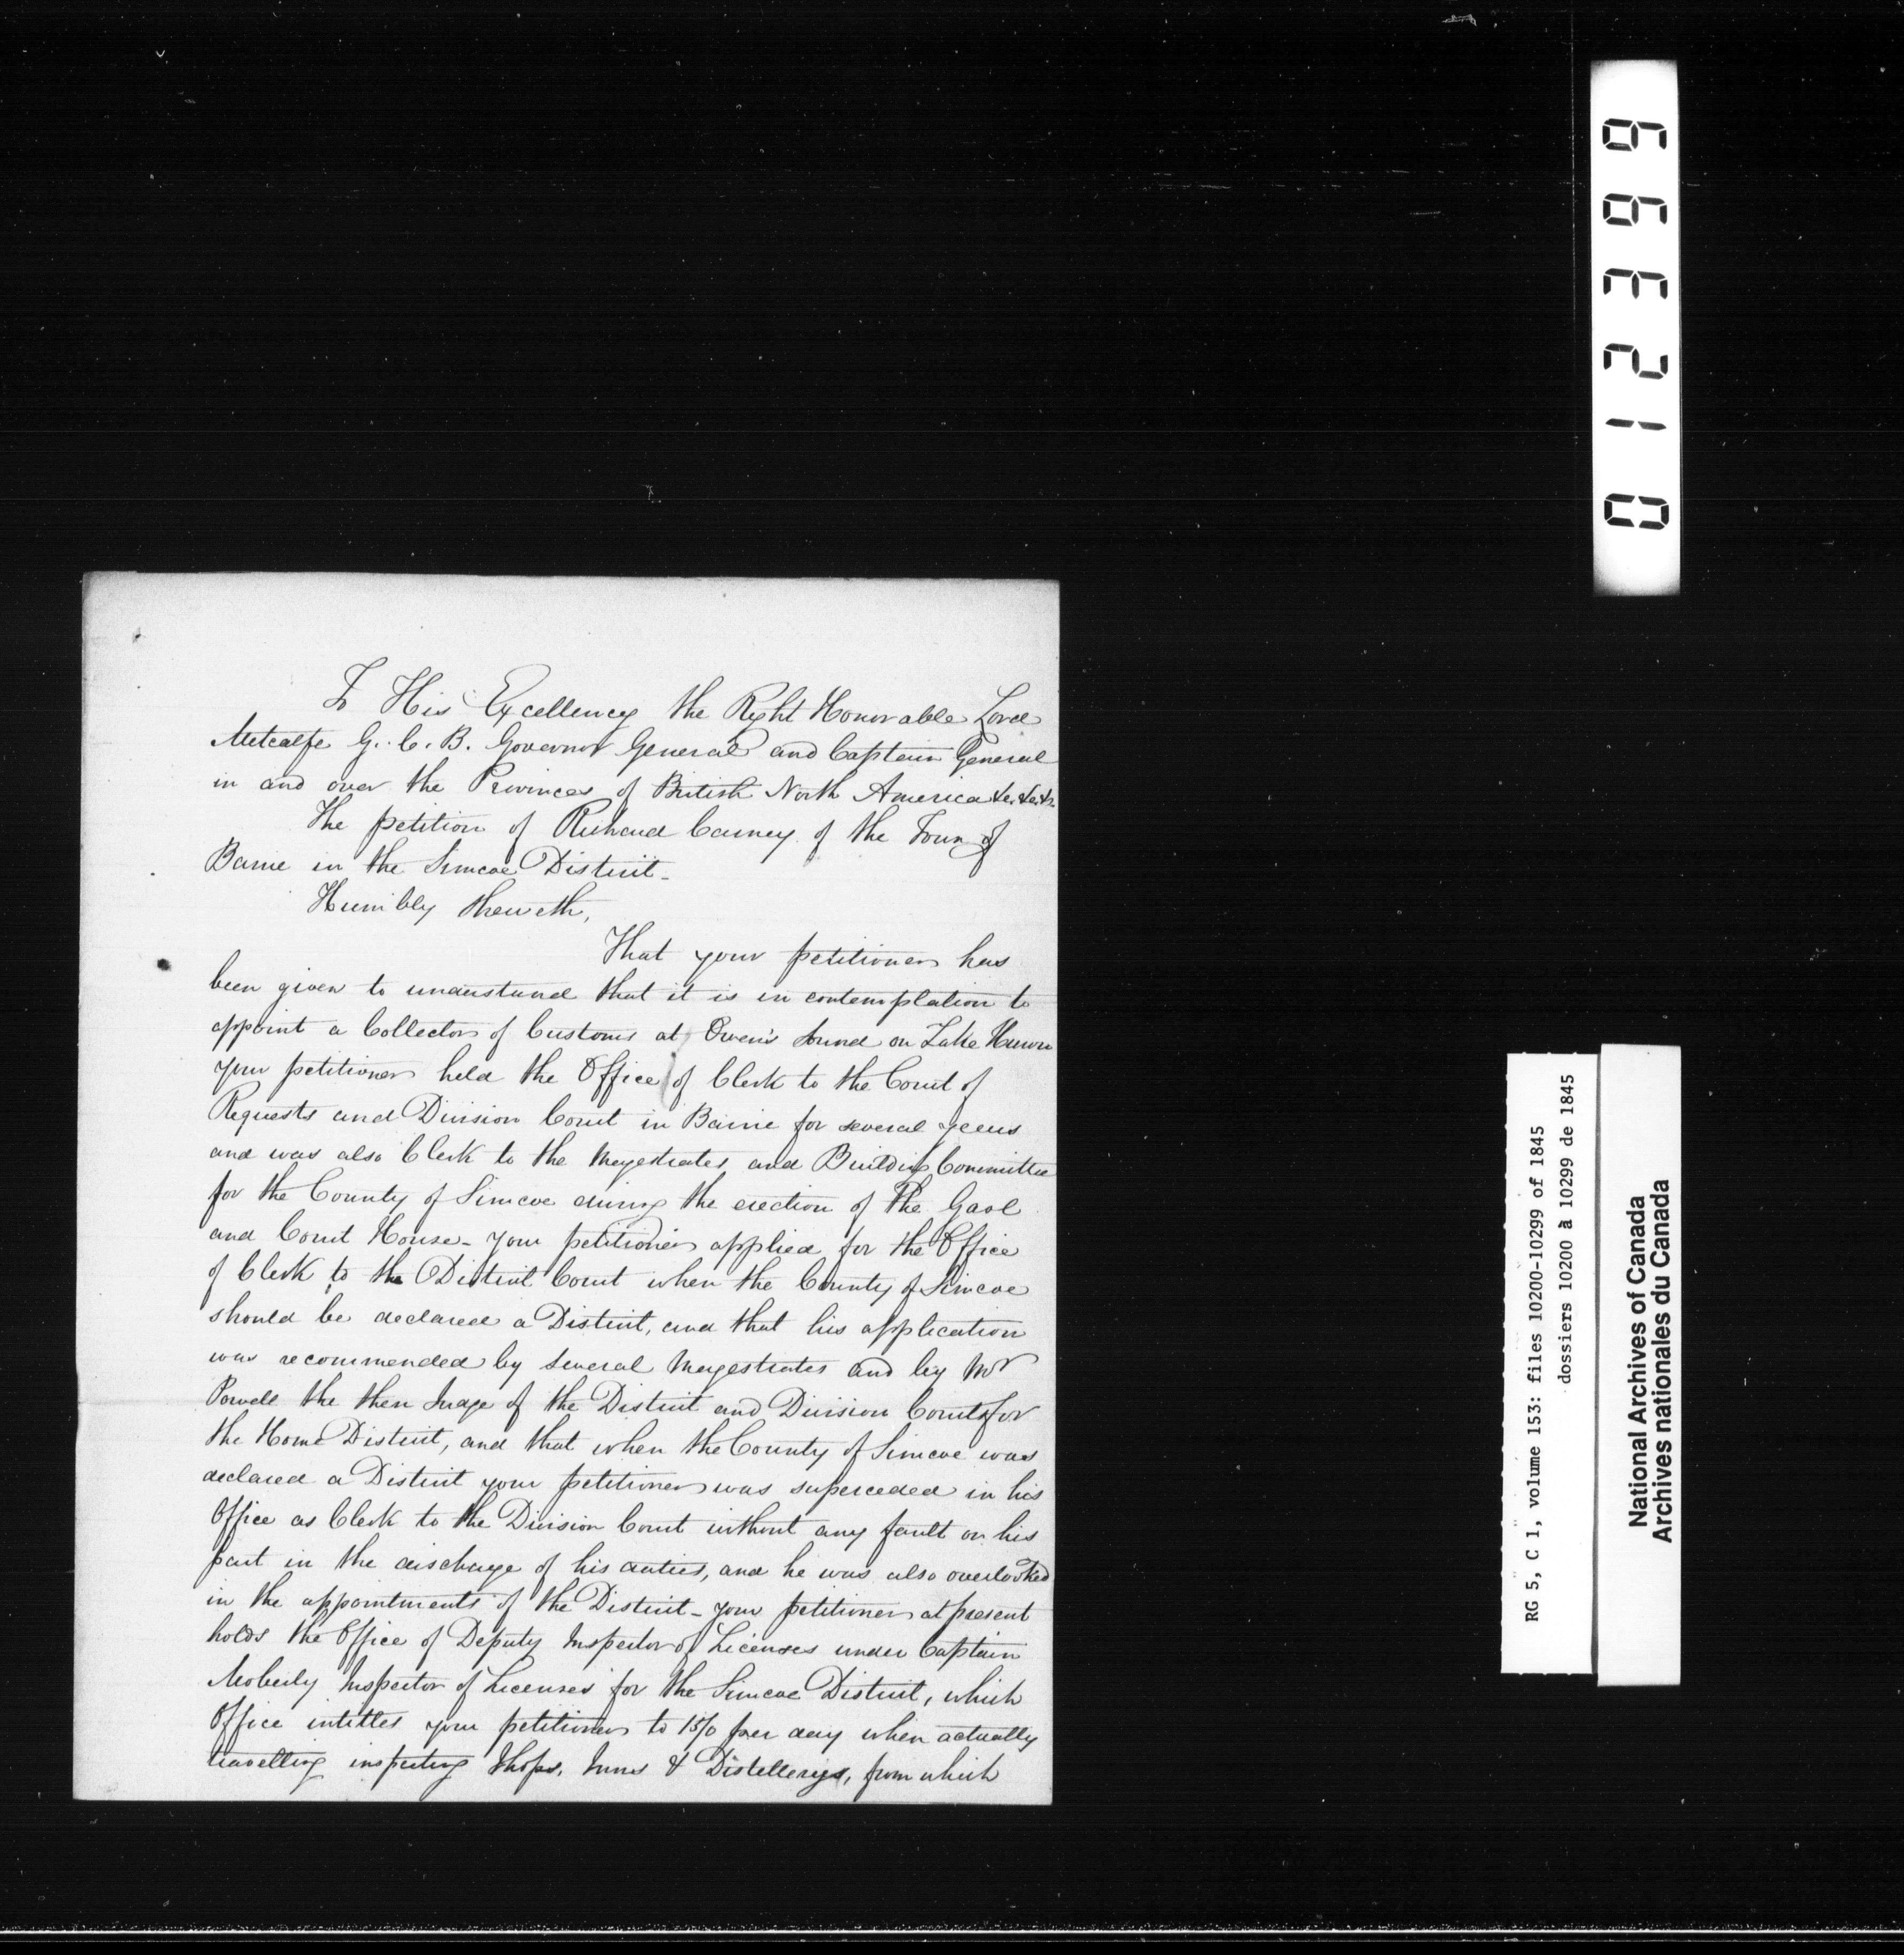 To His Excellency the Right Honorable Lord
Metcalfe G. C. B. Governor General and Captain General
in and over the Provinces of British North America &c. &c. &c.
The petition of Richard Carney of the Town of
Barrie in the Simcoe District-
Humbly Sheweth,
That your petitioner has
been given to understand that it is in contemplation to
appoint a Collector of Customs at Owen's Sound on Lake Huron
your petitioner held the Office of Clerk to the Court of
Requests and Division Court in Barrie for several years
and was also Clerk to the Magestrates and Building Committee
for the County of Simcoe during the erection of the Gaol
and Court House - your petitioner applied for the Office
of Clerk to the District Court when the County of Simcoe
should be declared a District, and that his application
was recommended by several Magestrates and by Mr
Powell the then Judge of the District and Division Courts for
the Home District, and that when the County of Simcoe was
declared a District your petitioner was superceded in his
Office as Clerk to the Division Court without any fault on his
part in the discharge of his duties, and he was also overlooked
in the appointments of the District - your petitioner at present
holds the Office of Deputy Inspector of Licenses under Captain
Moberly Inspector of Licenses for the Simcoe District, which
Office intitles your petitioner to 15/0 per day when actually
travelling inspecting Shops, Inns & Distellerys, from which
012399
RG 5, C 1, volume 153: files 10200-10299 of 1845
dossiers 10200 à 10299 de 1845
National Archives of Canada
Archives nationales du Canada